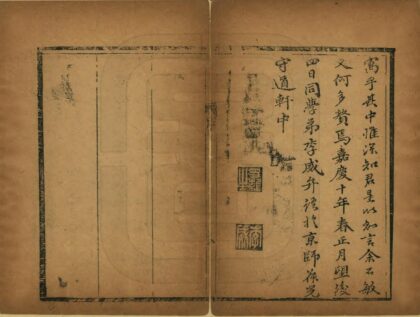 寓乎其中惟深知君是以知言余不敏
又何多贅焉嘉慶十年春正月朢後
四日同學弟李威并語於京師䘵光
守道軒中